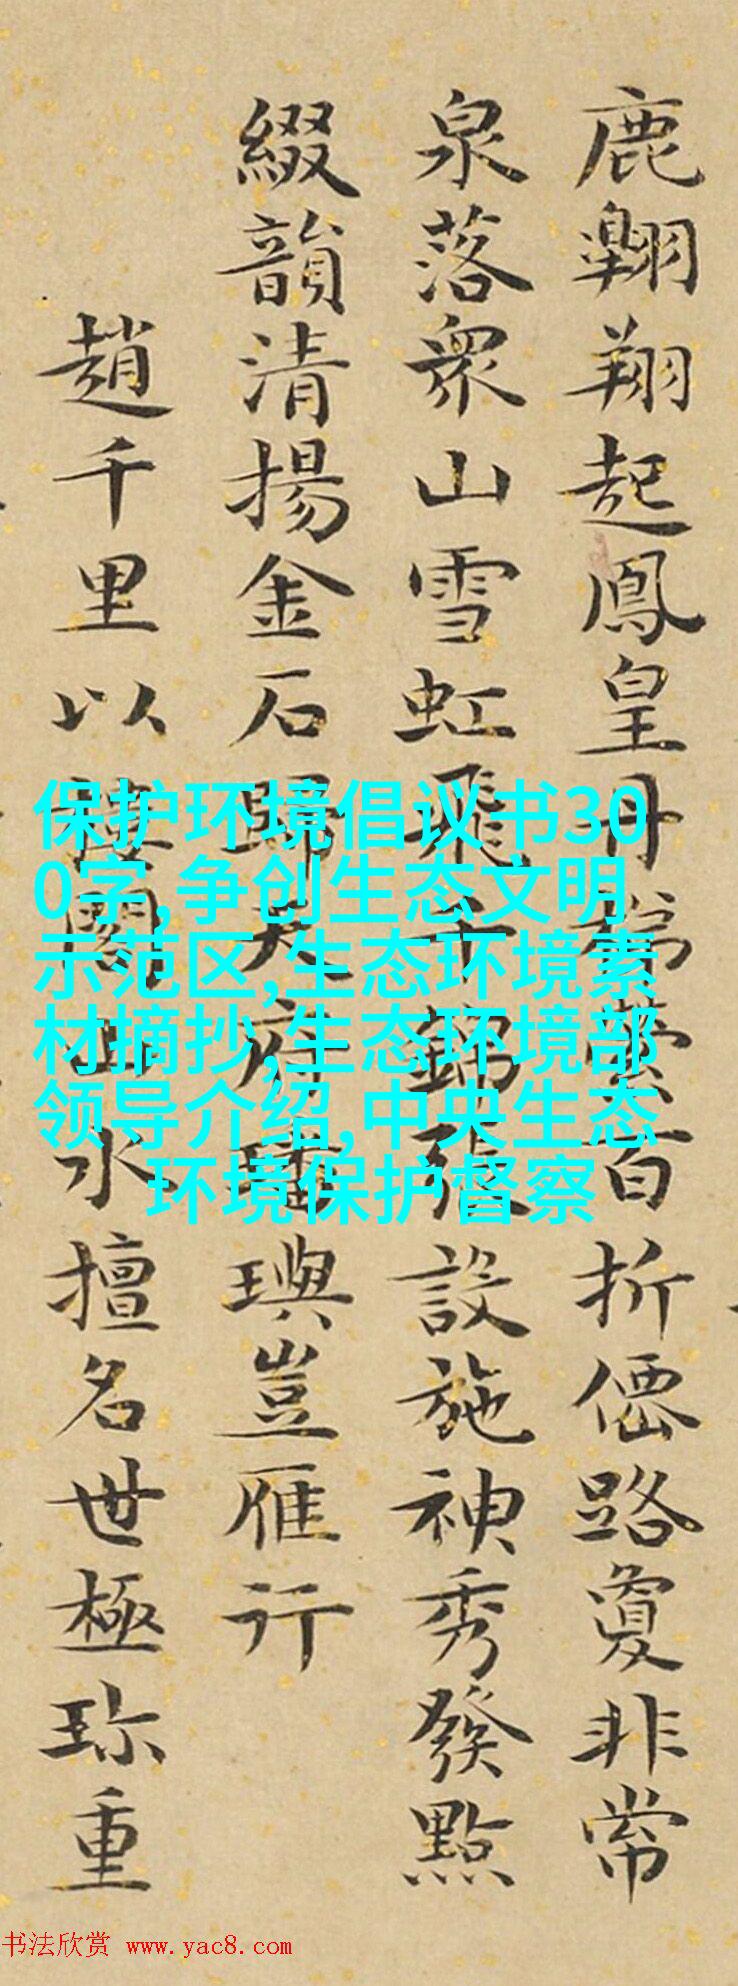 鹿翱翔起鳳皇丹梯雲百折僊路敻非常
泉落衆山雪虹飛千錦張設施神秀發點
綴韻清揚金石歸天府璠璵豈雁行
趙千里以 閣山水擅名世極珎重
保护环境倡议书30
0字,争创生态文明
示范区,生态环境素
材摘抄,生态环境部
领导介绍,中央生态
环境保护督察
书法欣赏 www.yac8.com